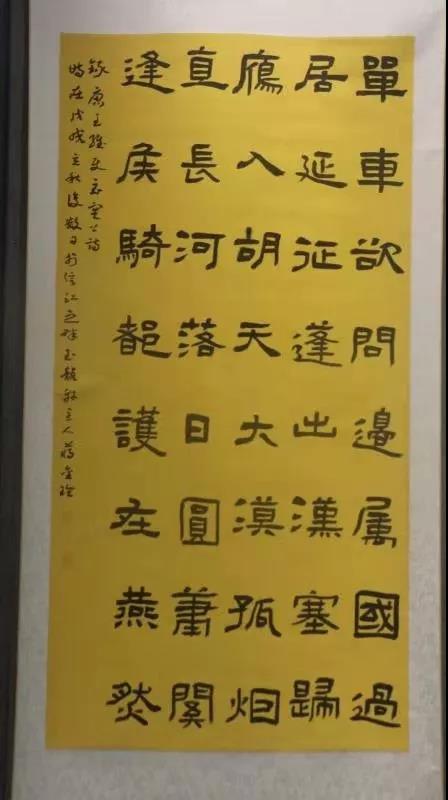 單車欲問邊屬國過
居延征蓬出漢塞歸
鴈入胡天大漠孤烟
直長河落日圓蕭関
逢侯騎都護在燕然
錄唐王維使至塞上詩
時在戊戌立秋後數日於信江之畔玉龍軒主人蔣金